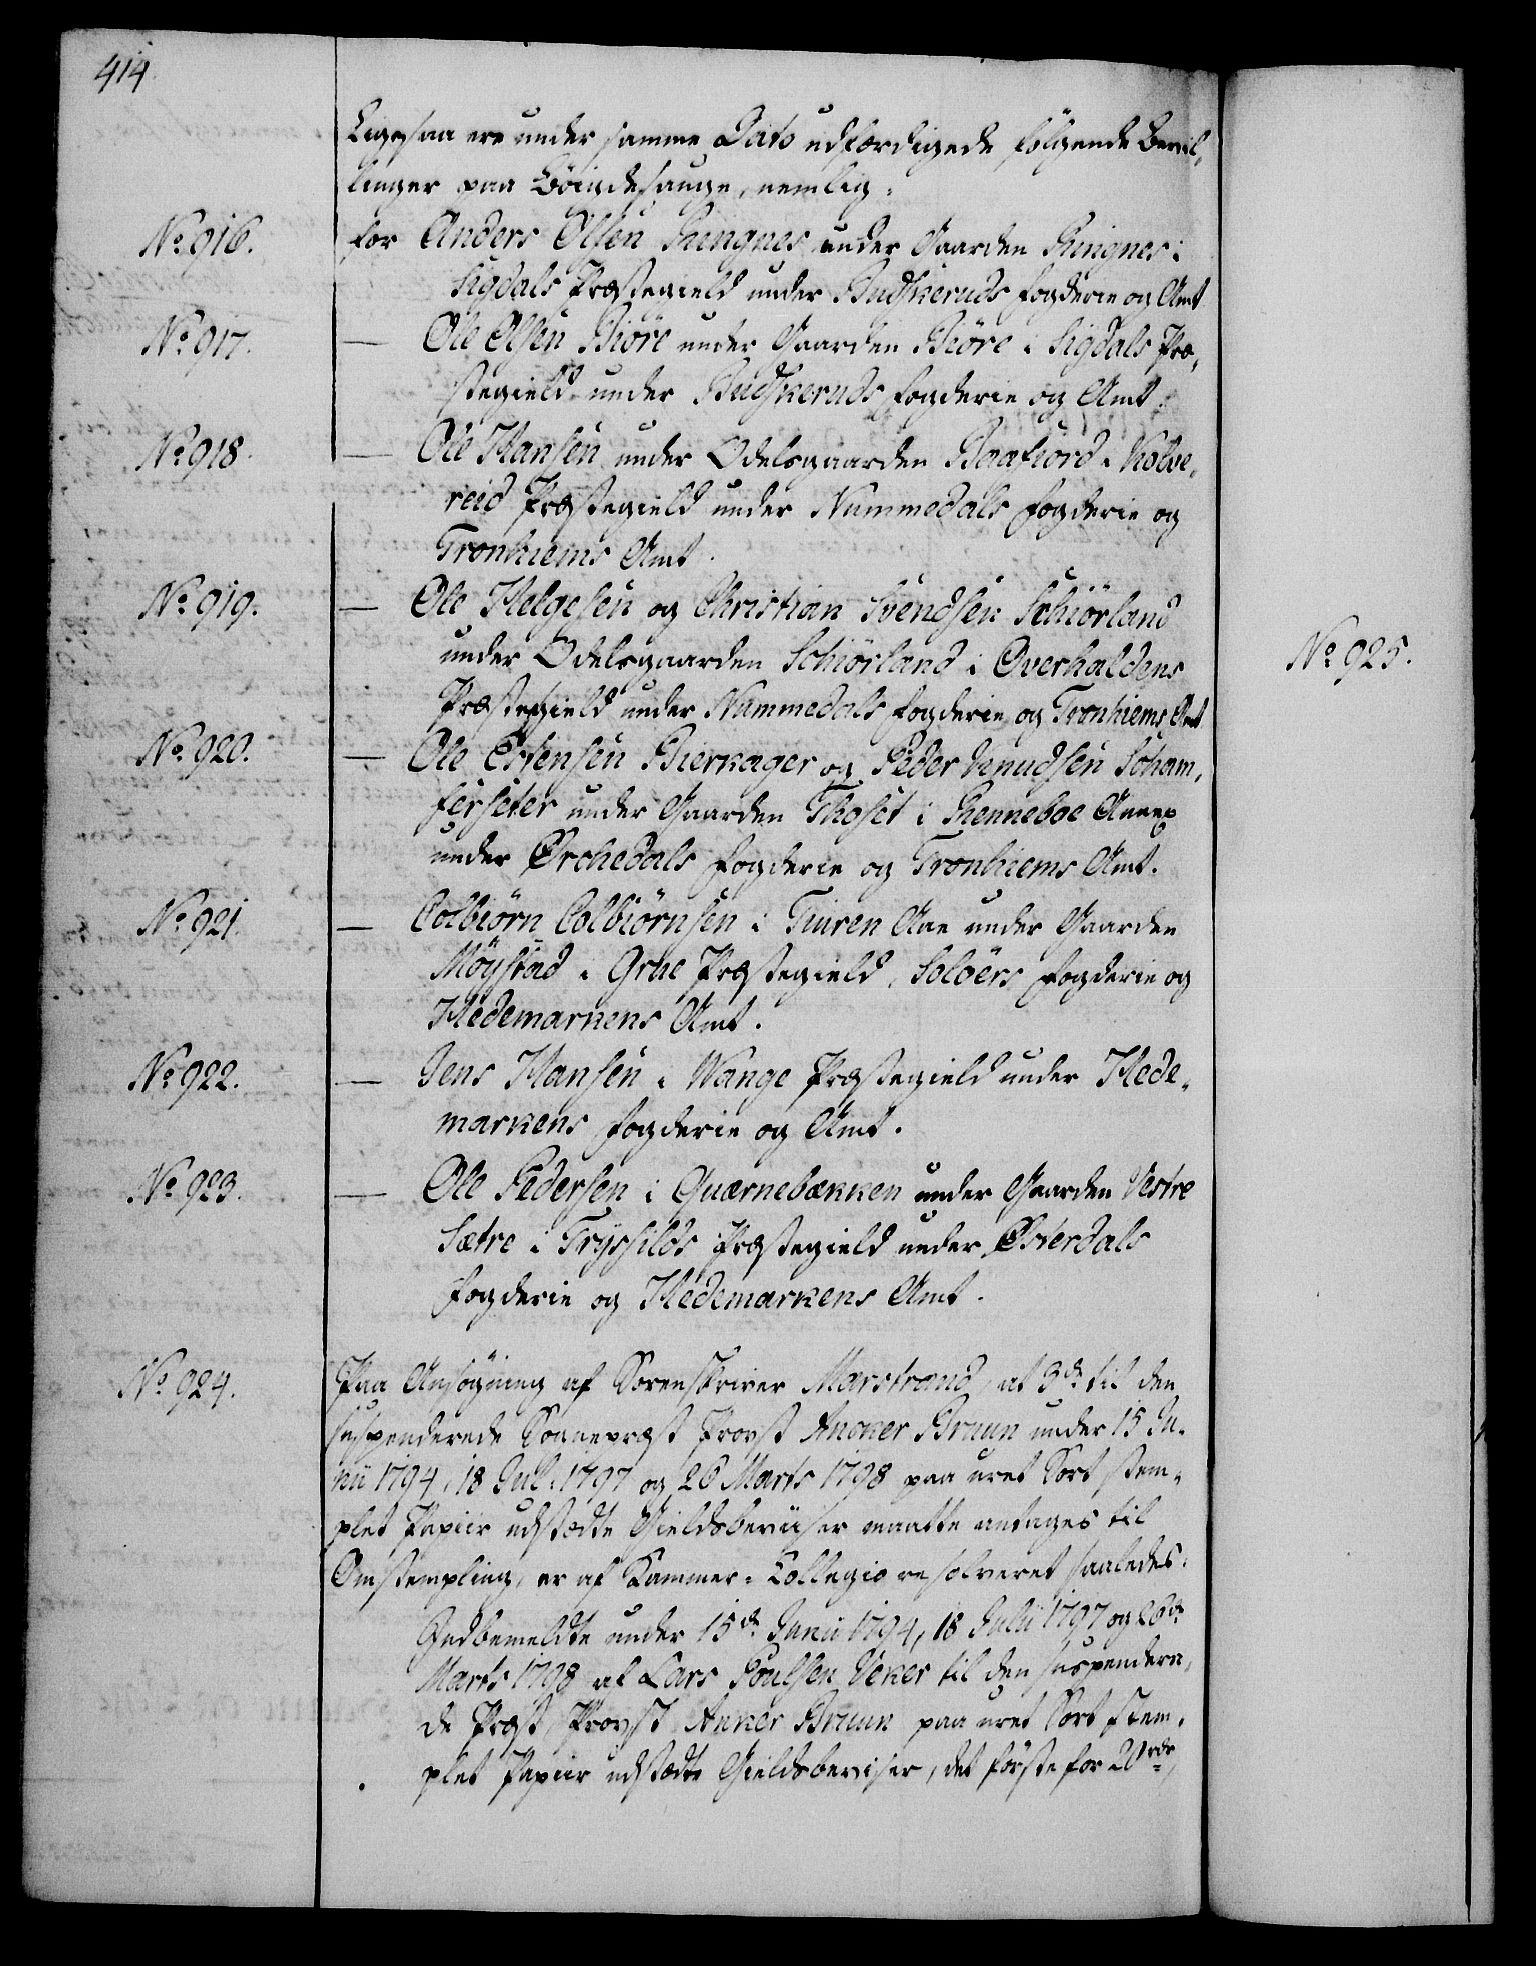 414
Ligesaa ere under samme Dato udfærdigede følgende Bevil-
linger paa Böigdesauge, nemlig:
No 916. for Anders Olsen Ringnes under Gaarden Ringnes i
Sigdals Præstegield under Budskeruds Fogderie og Amt
No 917. — Ole Olsen Biöre under Gaarden Biöre i Sigdals Præ-
stegield under Budskeruds Fogderie og Amt.
No 918. — Ole Hansen under Odelsgaarden Baafiord i Kolve-
reid Præstegield under Nummedals Fogderie og
Tronhiems Amt.
No 919. — Ole Helgesen og Christian Svendsen Schiörland
under Odelsgaarden Schiörland i Overhaldens
Præstegield under Nummedals Fogderie og Tronhiems Amt
No 920. — Ole Estensen Bierkager og Peder Knudsen Scham-
ferseter under Gaarden Thoset i Renneboe Annex
under Orchedals Fogderie og Tronhiems Amt.
No 921. — Colbiörn Colbiörnsen i Tiuren Aae under Gaarden
Möystad i Grue Præstegield, Solöers Fogderie og
Hedemarkens Amt.
No 922. — Jens Hansen i Wange Præstegield under Hede-
markens Fogderie og Amt.
No 923. — Ole Pedersen i Quærnebækken under Gaarden Vestre
Sætre i Tryssilds Præstegield under Österdals
Fogderie og Hedemarkens Amt.
No 924. Paa Ansøgning af Sorenskriver Marstrand, at 3de til den
suspenderede Sognepræst Provst Ancker Bruun under 15 Ju-
nii 1794, 18 Jul. 1797 og 26 Marts 1798 paa uret Sort stem-
plet Papiir udstædte Gieldsbeviiser maatte antages til
Omstempling, er af Kammer-Collegio resolveret saaledes:
Indbemeldte under 15de Junii 1794, 18 Julii 1797 og 26de
Marts 1798 af Lars Poulsen Veker til den suspendere-
de Præst, Provst Anker Bruun paa uret Sort stem-
plet Papiir udstædte Gieldsbeviser, det første for 20 rdr,
No 925.